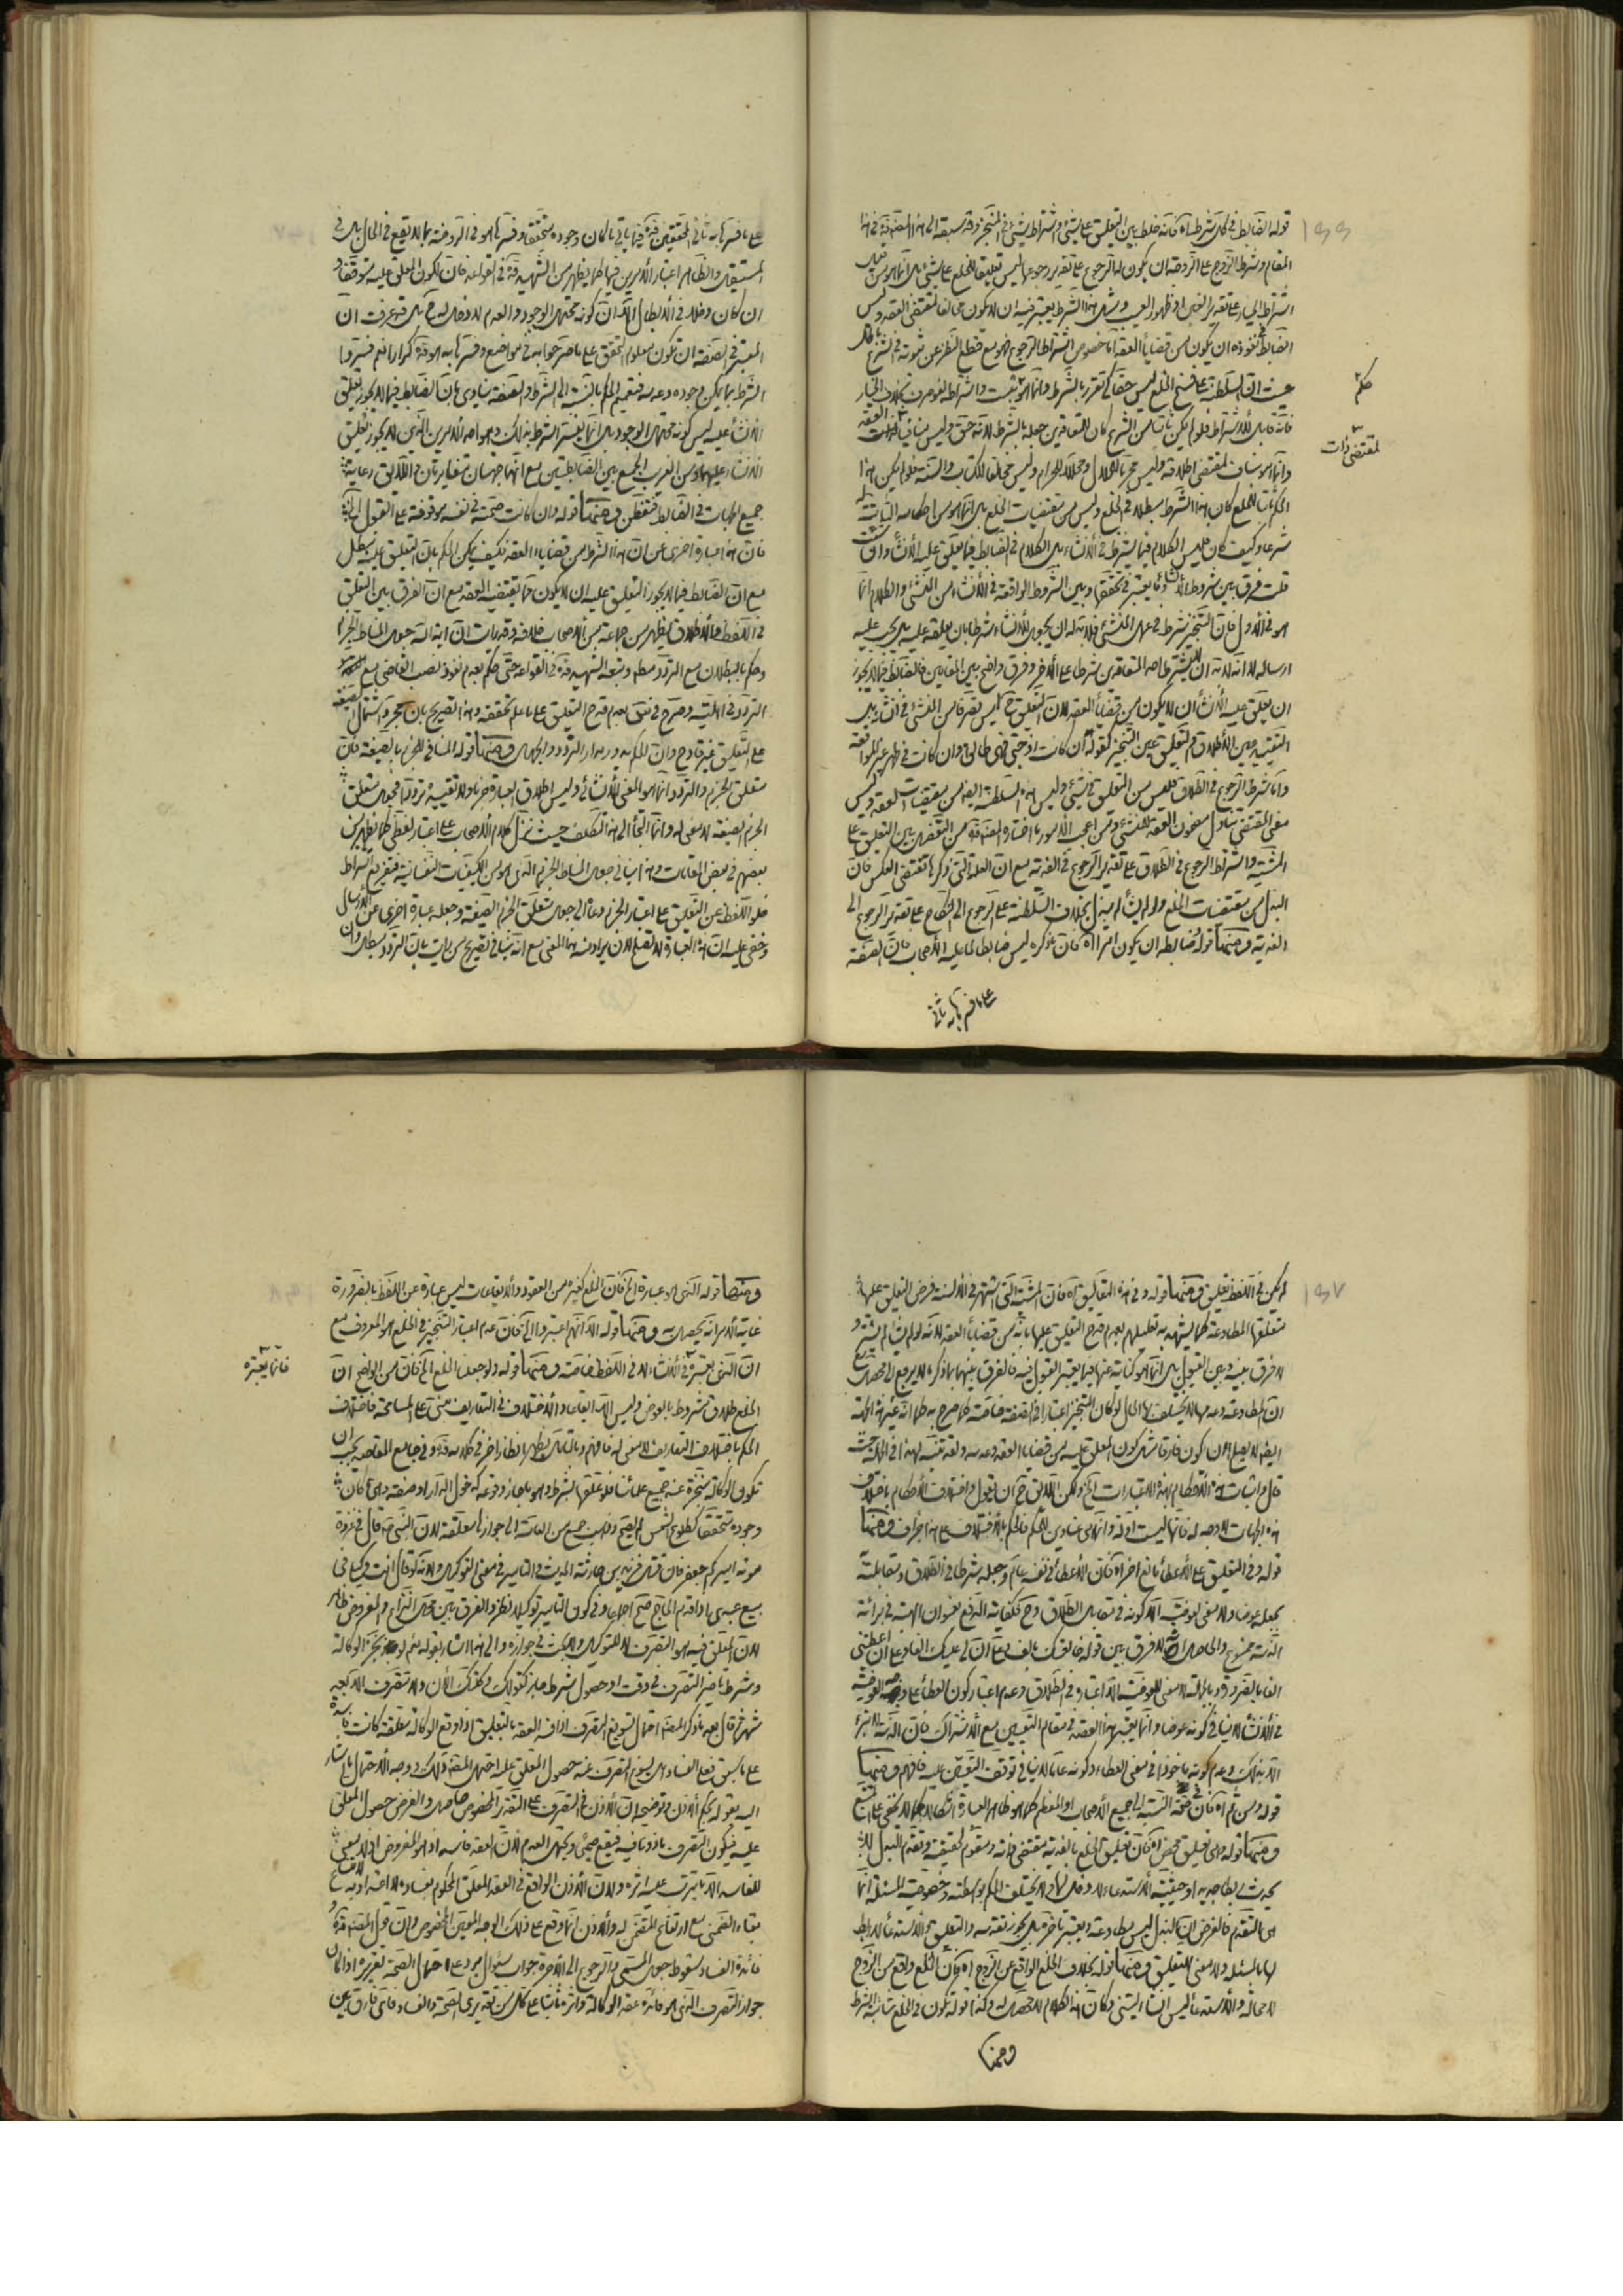 قوله الضابط في كل شرط اه كانه خلط بين التعليق على شيء واشتراط شيء في المنجز وقد سبقه الى هذا
المقام وشرط الزوج على الزوجة ان يكون له الرجوع على تقدير رجوعها ليس تعليق الخلع على شيء بل انما هو من
اشتراط الخيار على تقدير الغبن او ظهور العيب ومثل هذا الشرط يعتبر فيه ان لا يكون مخالفا لمقتضى العقد وليس
الضابط في نفوذه ان يكون من قضايا العقد اما خصوص اشتراط الرجوع فهو مع قطع النظر عن ثبوته في الشرع
حيث ان السلطنة على فسخ الخلع ليس حقا كي تقرر بالشرط
حكم
فانه قابل للاشتراط فلو لم يكن ثابتا من الشرع كان للمتعاقدين جعله بالشرط لانه حق وليس منافيا
لمقتضى ذات
العقد
وانما هو مناف لمقتضى اطلاقه وليس محرما للحلال ومحللا للحرام وليس مخالفا للكتاب والسنة فلو لم يكن هذا
الحكم ثابتا للخلع كان هذا الشرط مبطلا في الخلع وليس من مقتضيات الخلع بل انما هو من احكامه الثابتة
شرعا وكيف كان فليس الكلام فيما يشترط في الانشاء بل الكلام في الضابط فيما يعلق عليه الانشاء
قلت فرق بين شروط الانشاء وما يعتبر في تحققها وبين الشروط الواقعة في الانشاء من المنشئ والكلام انما
هو في الاول فان التنجيز شرط في عمل المنشئ فلا بد له ان يجعل للانشاء شرطا بان يعلقه عليه بل يجب عليه
ارساله لا انه لا بد ان لا يشترط احد المتعاقدين شرطا على الاخر وفرق واضح بين المقامين فالضابط فيما لا يجوز
ان يعلق عليه الانشاء ان لا يكون من قضايا العقد لان التعليق ح ليس تصرفا من المنشئ في انشائه بل
التقييد عين الاطلاق والتعليق عين التنجيز كقوله ان كانت زوجتي فهي طالق وان كانت في طهر غير المواقعة
واما شرط الرجوع في الطلاق فليس من التعليق في شيء وليس هذه السلطنة ايضا من مقتضيات العقد وليس
معنى المقتضي تناول مضمون العقد للمنشئ ومن اعجب الامور ما اختاره المصنف قده من التفصيل بين التعليق على
المشية واشتراط الرجوع في الطلاق على تقدير الرجوع في الفدية مع ان العلة التي ذكرها تقتضي العكس فان
البذل من مقتضيات الخلع ولو لم يشأ لم يبذل بخلاف السلطنة على الرجوع الى النكاح على تقدير الرجوع الى
الفدية ومنها قوله ضابطه ان يكون امرا اه فان ما ذكره ليس ضابطا لما عليه الاصحاب فان الصفة
على ما فسرها به ثاني
على ما فسرها به ثاني المحققين قده فيما ياتي ما كان وجوده متحققا وفسرها هو في الروضة بما لا يقع في الحال بل في
المستقبل والظاهر اعتبار الامرين فيها كما يظهر من الشهيد قده في القواعد فان لكون المعلق عليه متوقعا و
ان كان دخلا في الابطال الا ان كونه محتمل الوجود والعدم لا دخل له ح بل قد عرفت ان
المعتبر في الصفة ان يكون معلوم التحقق على ما صرحوا به في مواضع وفسرها به هو قده كرارا نعم فسروا
الشرط بما يمكن وجوده وعدمه فتعميم الحكم بالنسبة الى الشرط والصفة ينادي بان الضابط فيما لا يجوز تعليق
الانشاء عليه ليس كونه محتمل الوجود بل انما يفسر الشرط بذلك وهو احد الامرين الذين لا يجوز تعليق
الانشاء عليهما ومن الغريب الجمع بين الضابطين مع انهما جهتان متغايرتان واللائق رعاية
جميع الجهات في الضابط فتفطن ومنها قوله وان كانت صحته في نفسه موقوفة على القبول اه
فان هذا عبارة اخرى عن ان هذا الشرط من قضايا العقد فكيف يمكن الحكم بان التعليق عليه مبطل
مع ان الضابط فيما لا يجوز التعليق عليه ان لا يكون مما يقتضيه العقد مع ان الفرق بين التعليق
في اللفظ والاطلاق يظهر من جماعة من الاصحاب خلافه وقد رايت ان اية الله جعل المناط الجزم
وحكم بالبطلان مع التردد مطلقا وتبعه الشهيد قده في القواعد حتى حكم بعدم نفوذ نصب القاضي مع
التردد في اهليته وصرح في نفى بعدم قدح التعليق على ما علم تحققه وهذا تصريح بان مجرد اشتمال الصيغة
على التعليق غير قادح وان الحكم يدور مدار التردد والجهل ومنها قوله المنافي للجزم بالصيغة فان
متعلق الجزم والتردد انما هو المعنى الانشائي وليس اطلاق العبارة جزما ولا تقييده ترددا فجعل متعلق
الجزم الصيغة لا معنى له وانما التجأ الى هذا التكلف حيث نزل كلام الاصحاب على اعتبار لفظي كما يظهر من
بعضهم في بعض المقامات وهذا ينافي جعل المناط الجزم الذي هو من الكيفيات النفسانية فتقرير اشتراط
خلو اللفظ عن التعليق على اعتبار الجزم دعاه الى جعل متعلق الجزم الصيغة وجعله عبارة اخرى عن الارسال
وخفي عليه ان هذه العبارة لا تصلح لان يراد منه هذا المعنى مع انه ينافي تصريح من رايت بان التردد مبطل وان
لم يكن في اللفظ تعليق ومنها قوله وفي هذه التعاليق اه فان المشية التي اشتهر في الالسنة فرض التعليق عليها
متعلقها المطاوعة كما يشهد به تعليلهم بعدم قدح التعليق عليها بانه من قضايا العقد لانه لو لم يشأ لم يشتر و
لا فرق بينه وبين القبول بل انما هو كناية عنها فيما يعتبر القبول فيه فالفرق بينهما بما ذكره لا يرجع الى محصل
ان المطاوعة وعدمها لا يختلف الحال لو كان التنجيز اعتبارا في الصيغة خاصة كما صرح به كما انه عين هذه الجهة
ايضا لا يصلح لان يكون فارقا مثل كون المعلق عليه من قضايا العقد وعدمه ولقد تنبه لهذا في الجملة حيث
قال واثبات هذه الاحكام بهذه الاعتبارات الخ ولكن اللائق ح ان يقول واختلاف الاحكام باختلاف
هذه الجهات لا وجه له فانها ليست ادلة وانما هي عناوين للحكم فالحكم بالاختلاف على هذا جزاف ومنها
قوله وفي التعليق على الاعطاء مانع اخر اه فان الاعطاء في نفسه عام وجعله شرطا في الطلاق ومقابلته
يجعله عوضا ولا معنى لعوضية الا كونه في مقابل الطلاق وح فكفاية الدفع بعنوان الهبة في برائة
الذمة ممنوع والحاصل انه لا فرق بين قوله خالعتك بالف وعلى ان لي عليك الفا وعلى ان اعطيتني
الفا بالضرورة وبالجملة لا معنى للعوضية الا اعتباره في الطلاق وعدم اعتبار كون العطاء على وجه العوضية
في الانشاء لا ينافي كونه عوضا وانما يعتبر هذا القصد في مقام التعيين مع الاشتراك فان الذمة لا تبرء
الا بذلك وعدم كونه ماخوذا في معنى العطاء وكونه عاما لا ينافي توقف التعويض عليه فافهم ومنها
قوله ومن ثم اه فان في صحة النسبة الى جميع الاصحاب او المعظم كما هو ظاهر العبارة اشكالا كما لا يخفى على المتتبع
ومنها قوله وهل تعليق محض اه فان تعليق الخلع بالفدية مقتضى ذاته ومقوم لحقيقته وتقدم البذل
يحدث لطاجيريه او حيثية الاستدعاء لا دخل لها ولا يختلف الحكم بواسطته وخصوصية المسئلة انما
هي بالتقدم فالغرض ان البذل ليس مطاوعة ويعتبر تاخره بل يجوز تقدمه والتعليق بالاستدعاء لا ربط
لها بالمسئلة ولا معنى للتعليق ومنها قوله بخلاف الخلع الواقع عن الزوج اه فان الخلع واقع من الزوج
لا محالة والاستدعاء ليس انشاء لشيء فكان هذا الكلام لا محصل له وكذا قوله تكون في الخلع شائبة الشرط
ومنها
ومنها قوله الذي هو عبارة الخ فان الخلع كغيره من العقود والايقاعات ليس عبارة عن اللفظ بالضرورة
غاية الامر انه يحصل به ومنها قوله الا انهم اعتبروا الخ فان عدم اعتبار التنجيز في الخلع هو المعروف مع
ان الذي يعتبره في الانشاء لا في اللفظ خاصة ومنها قوله ولو جعلنا الخلع الخ فان من الواضح ان
فانما يعتبره
الخلع طلاق مشروط بالعوض وليس الا ايقاعا والاختلاف في التعاريف مبني على المسامحة فاختلاف
الحكم باختلاف التعاريف لا معنى له فافهم وبالتامل يظهر انظار اخر في كلامه قده وفي جامع المقاصد يجب ان
تكون الوكالة منجزة عند جميع علمائنا فلو علقها بشرط وهو ما جاز وقوعه كدخول الدار او صفة وهي ما كان
وجوده متحققا كطلوع الشمس لم يصح وذهب جمع من العامة الى جوازها معلقة لان النبي ص قال في غزوة
موته اميركم جعفر فان قتل فزيد بن حارثة الحديث والتامير في معنى التوكيل ولانه لو قال انت وكيلي في
بيع عبدي اذا قدم الحاج صح اجماعا وفي كون التامير توكيلا نظر والفرق بين محل النزاع والمفروض ظاهر
لان المعلق فيه هو التصرف لا التوكيل والبحث في جوازه والى هذا اشار بقوله نعم لو نجز الوكالة
وشرط تاخير التصرف في وقت او حصول شرط جاز كقوله وكلتك الان ولا تتصرف الا بعد
شهر ثم قال بعد ما ذكر المصنف احتمال تسويغ التصرف اذا فسد العقد بالتعليق اذا اوقع الوكالة معلقة كانت فاسدة
على ما سبق فعلى الفساد هل يسوغ التصرف عند حصول المعلق عليه احتمل المصنف ذلك ووجه الاحتمال ما اشار
اليه بقوله بحكم الاذن وتوضيحه ان الاذن في التصرف على التقدير المخصوص حاصل والفرض حصول المعلق
عليه فيكون التصرف ماذونا فيه فيقع صحيحا ويحتمل العدم لان العقد فاسد اذ هو المفروض اذ لا معنى
للفاسد الا ما لا يترتب عليه اثره ولان الاذن الواقع في العقد المعلق المحكوم بفساده لا اعتداد به لامتناع
بقاء الضمني مع ارتفاع المتضمن له والاذن انما وقع على ذلك الوجه المعين المخصوص وان قول المصنف قده و
فائدة الفساد سقوط جعل المسمى والرجوع الى الاجرة جواب سؤال يرد على احتمال الصحة تقريره اذا كان
جواز التصرف الذي هو فائدة عقد الوكالة واثره ثابتا على كل من تقديري الصحة والفساد فاي فارق بين